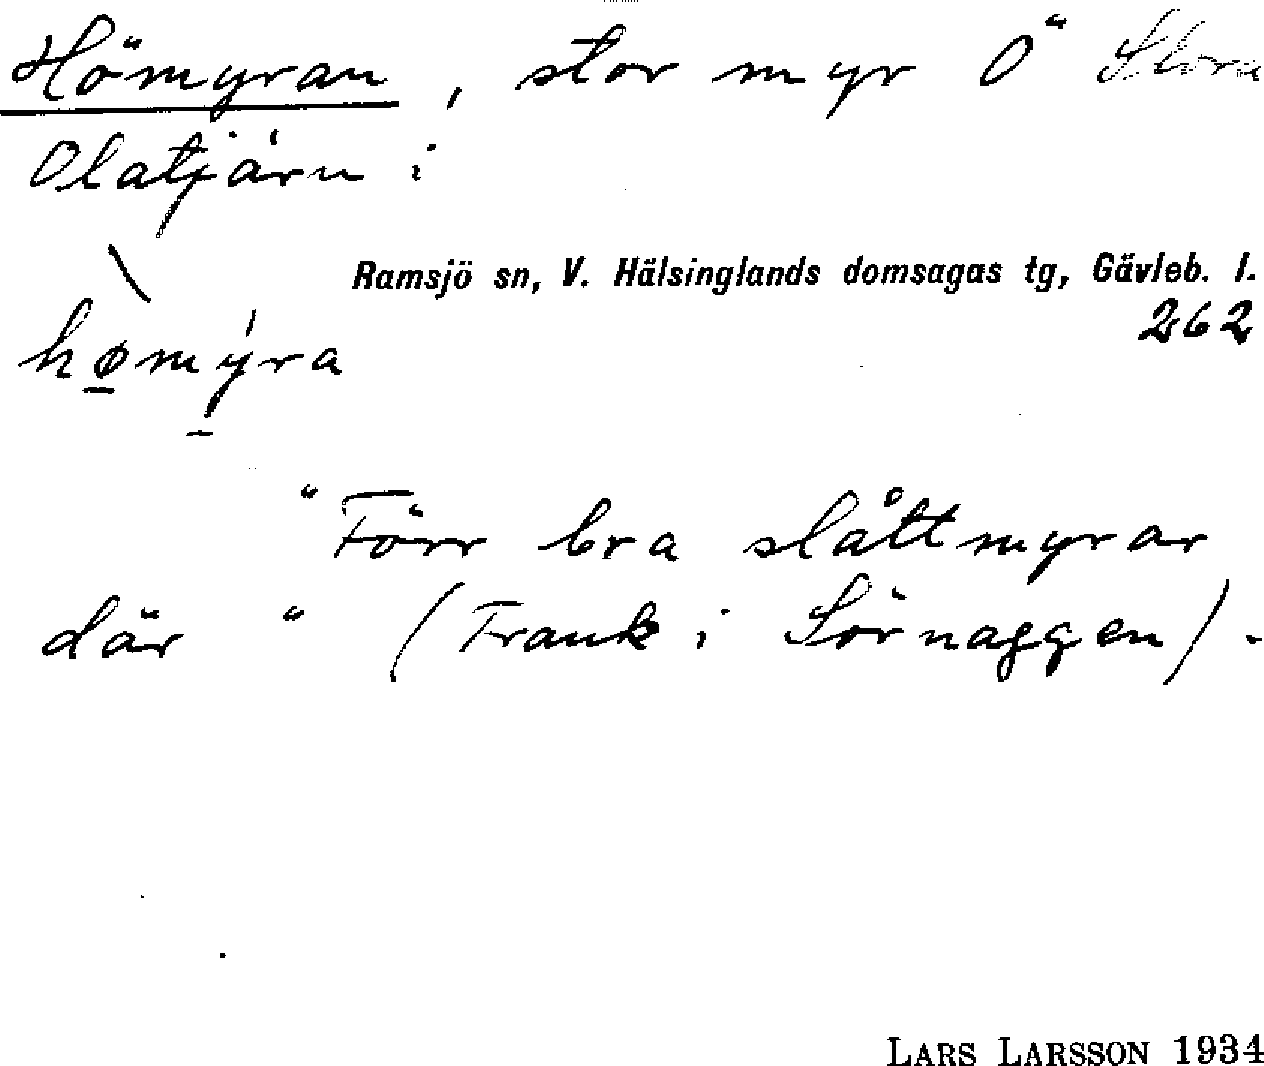 Hömyran, stor myr Ö Stora
Olatjärn i
Ramsjö sn, V. Hälsinglands domsagas tg, Gävleb. l.
262
hø̱mýra
"Förr bra slåttmyrar
där" (Frank i Sörnaggen).
LARS LARSSON 1934